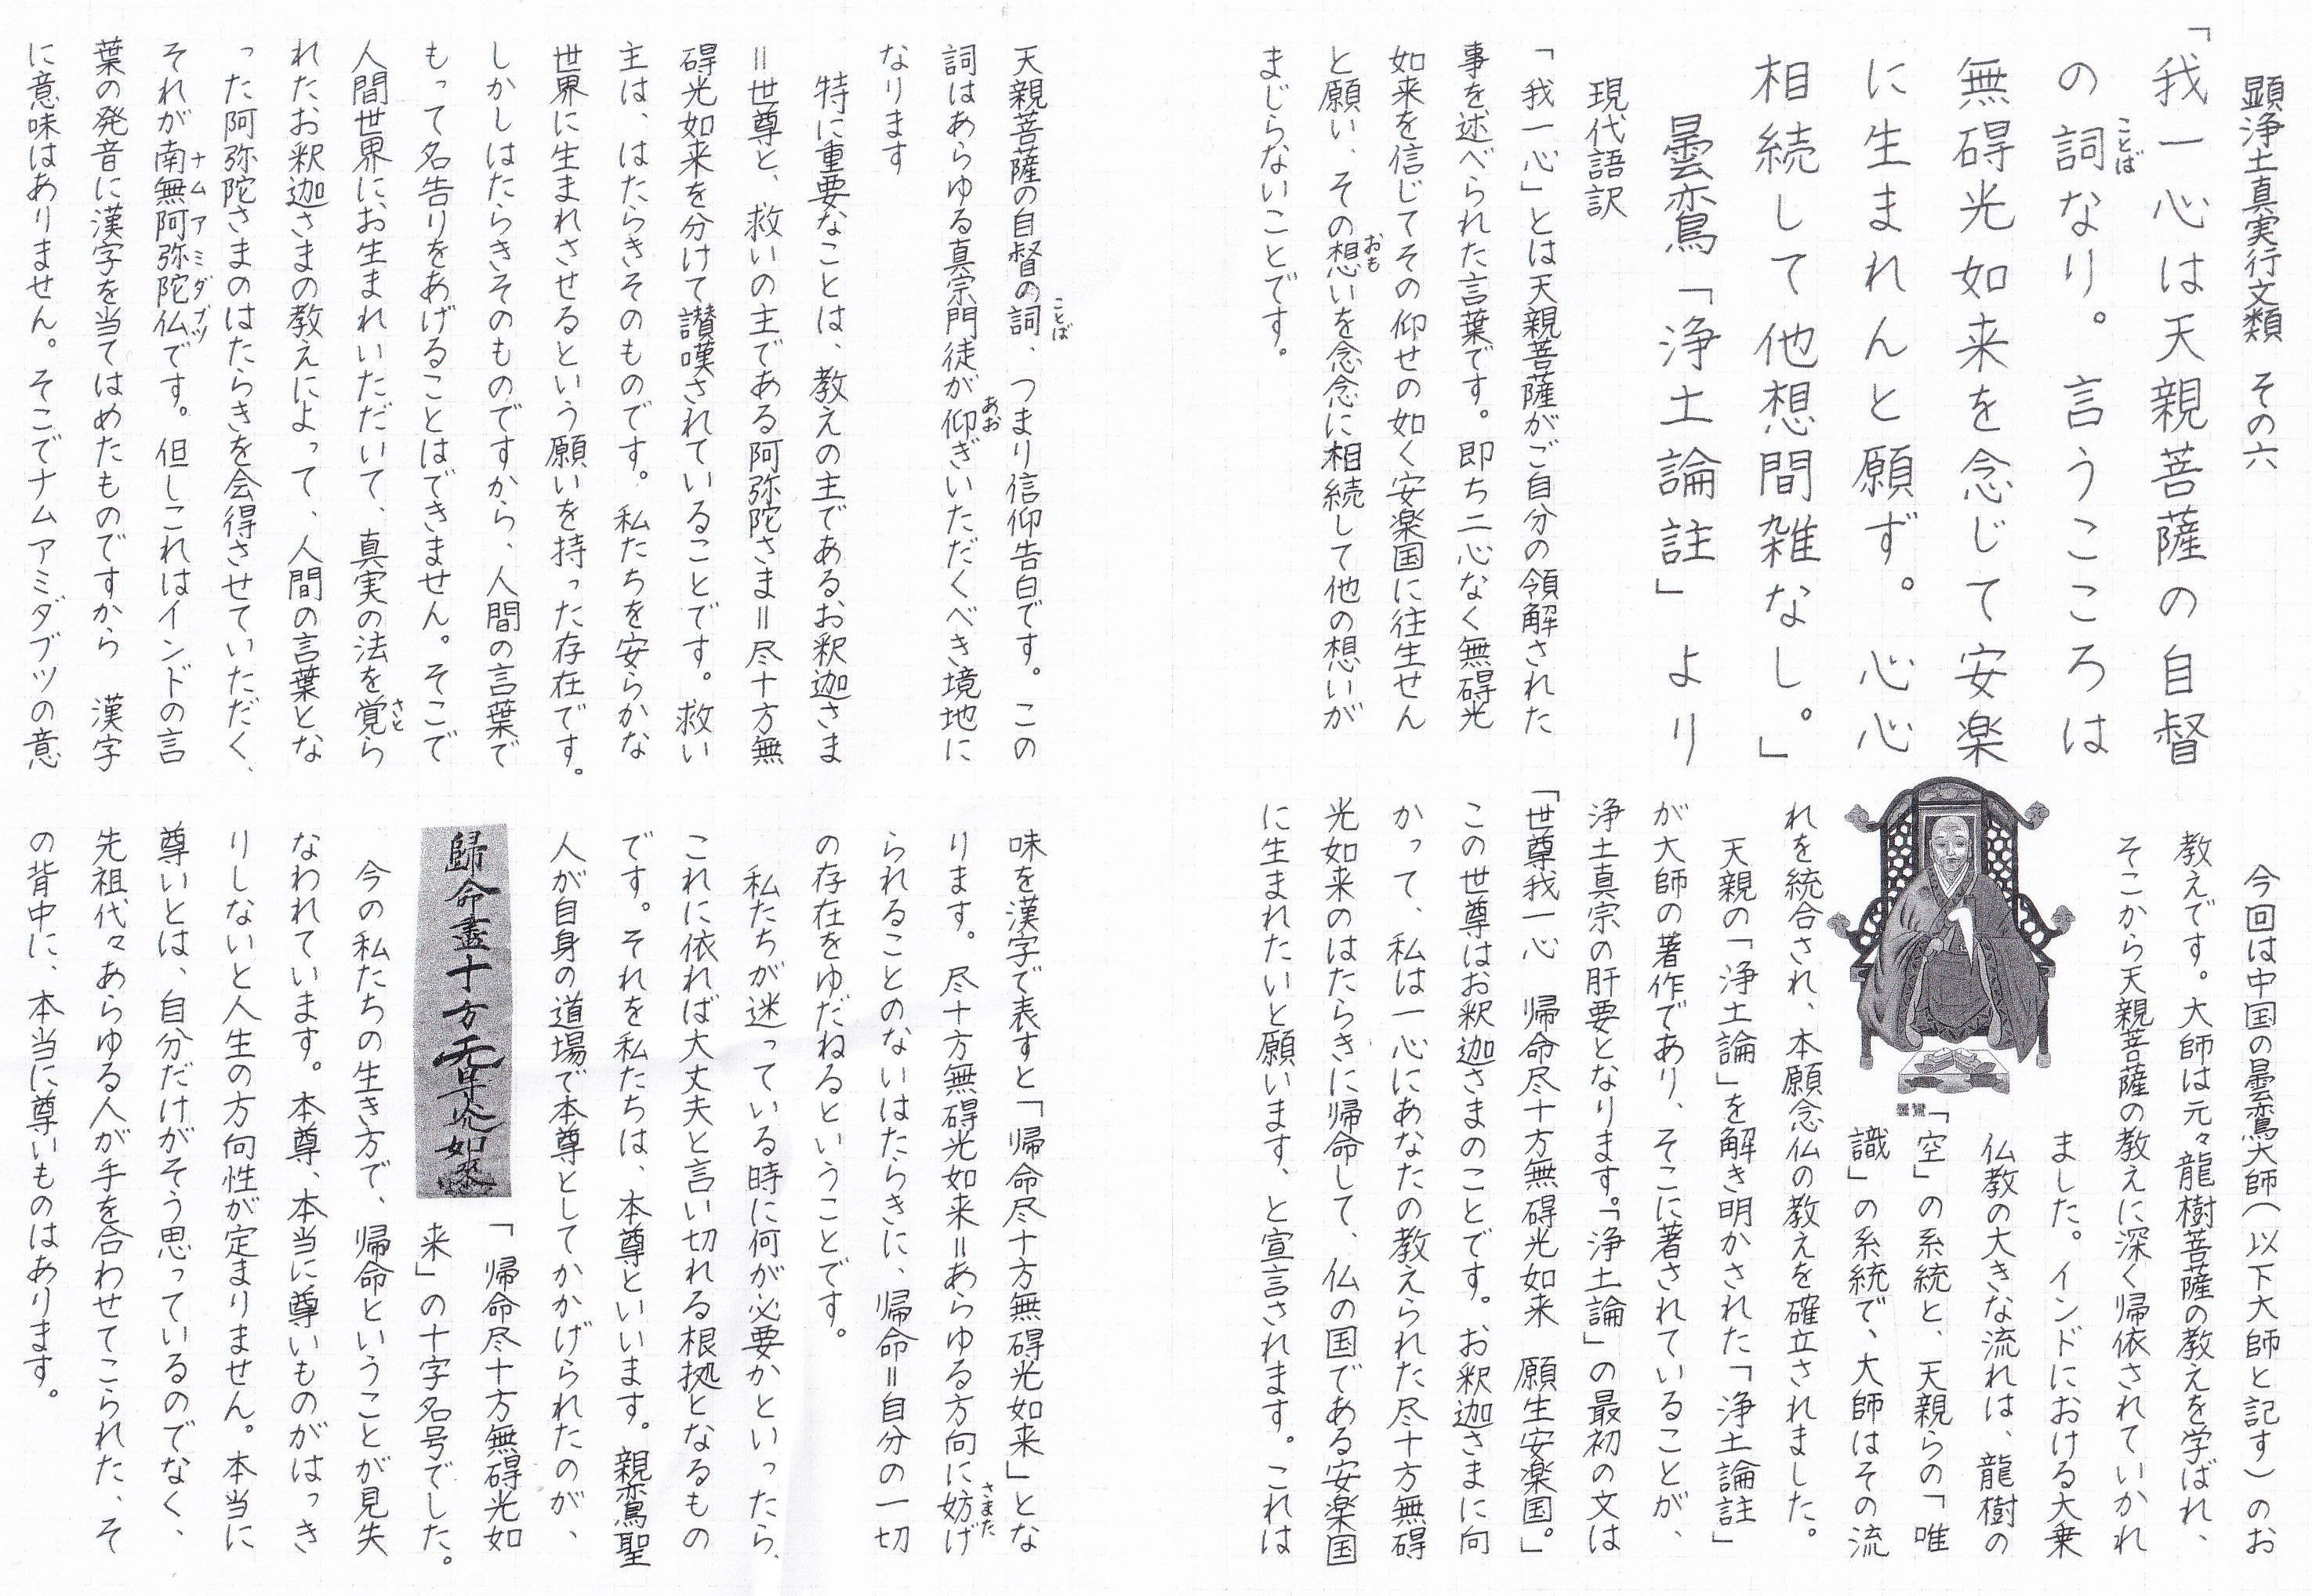 顕浄土真実行文類　その六
「我一心は天親菩薩の自督
の詞なり。言うこころは
ことば
無碍光如来を念じて安楽
に生まれんと願ず。心心
相続して他想間雑なし。」
曇鸞「浄土論註」より
現代語訳
「我一心」とは天親菩薩がご自分の領解された
事を述べられた言葉です。即ち二心なく無碍光
如来を信じてその仰せの如く安楽国に往生せん
と願い、その想いを念念に相続して他の想いが
おも
まじらないことです。
今回は中国の曇鸞大師（以下大師と記す）のお
教えです。大師は元々龍樹菩薩の教えを学ばれ、
そこから天親菩薩の教えに深く帰依されていかれ
ました。インドにおける大乗
仏教の大きな流れは、龍樹の
「空」の系統と、天親らの「唯
識」の系統で、大師はその流
曇鸞
れを統合され、本願念仏の教えを確立されました。
天親の「浄土論」を解き明かされた「浄土論註」
が大師の著作であり、そこに著されていることが、
浄土真宗の肝要となります。「浄土論」の最初の文は
「世尊我一心　帰命尽十方無碍光如来　願生安楽国。」
この世尊はお釈迦さまのことです。お釈迦さまに向
かって、私は一心にあなたの教えられた尽十方無碍
光如来のはたらきに帰命して、仏の国である安楽国
に生まれたいと願います、と宣言されます。これは
天親菩薩の自督の詞、つまり信仰告白です。この
ことば
詞はあらゆる真宗門徒が仰ぎいただくべき境地に
あお
なります
特に重要なことは、教えの主であるお釈迦さま
＝世尊と、救いの主である阿弥陀さま＝尽十方無
碍光如来を分けて讃嘆されていることです。救い
主は、はたらきそのものです。私たちを安らかな
世界に生まれさせるという願いを持った存在です。
しかしはたらきそのものですから、人間の言葉で
もって名告りをあげることはできません。そこで
人間世界にお生まれいただいて、真実の法を覚ら
さと
れたお釈迦さまの教えによって、人間の言葉とな
った阿弥陀さまのはたらきを会得させていただく、
それが南無阿弥陀仏です。但しこれはインドの言
ナムアミダブツ
葉の発音に漢字を当てはめたものですから　漢字
に意味はありません。そこでナムアミダブツの意
味を漢字で表すと「帰命尽十方無碍光如来」とな
ります。尽十方無碍光如来＝あらゆる方向に妨げ
さまた
られることのないはたらきに、帰命＝自分の一切
の存在をゆだねるということです。
私たちが迷っている時に何が必要かといったら、
これに依れば大丈夫と言い切れる根拠となるもの
です。それを私たちは、本尊といいます。親鸞聖
人が自身の道場で本尊としてかかげられたのが、
「帰命尽十方無碍光如
来」の十字名号でした。
歸命盡十方无㝵光如來
今の私たちの生き方で、帰命ということが見失
なわれています。本尊、本当に尊いものがはっき
りしないと人生の方向性が定まりません。本当に
尊いとは、自分だけがそう思っているのでなく、
先祖代々あらゆる人が手を合わせてこられた、そ
の背中に、本当に尊いものはあります。